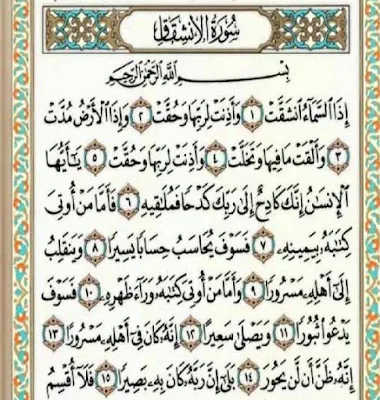 سُورَةُ الِانشِقَاقِ
بِسْمِ اللَّهِ الرَّحْمَٰنِ الرَّحِيمِ
إِذَا السَّمَاءُ انشَقَّتْ ١ وَأَذِنَتْ لِرَبِّهَا وَحُقَّتْ ٢ وَإِذَا الْأَرْضُ مُدَّتْ
٣ وَأَلْقَتْ مَا فِيهَا وَتَخَلَّتْ ٤ وَأَذِنَتْ لِرَبِّهَا وَحُقَّتْ ٥ يَٰأَيُّهَا
الْإِنسَٰنُ إِنَّكَ كَادِحٌ إِلَىٰ رَبِّكَ كَدْحًا فَمُلَٰقِيهِ ٦ فَأَمَّا مَنْ أُوتِيَ
كِتَٰبَهُ بِيَمِينِهِ ٧ فَسَوْفَ يُحَاسَبُ حِسَابًا يَسِيرًا ٨ وَيَنقَلِبُ
إِلَىٰ أَهْلِهِ مَسْرُورًا ٩ وَأَمَّا مَنْ أُوتِيَ كِتَٰبَهُ وَرَاءَ ظَهْرِهِ ١٠ فَسَوْفَ
يَدْعُوا ثُبُورًا ١١ وَيَصْلَىٰ سَعِيرًا ١٢ إِنَّهُ كَانَ فِي أَهْلِهِ مَسْرُورًا ١٣
إِنَّهُ ظَنَّ أَن لَّن يَحُورَ ١٤ بَلَىٰ إِنَّ رَبَّهُ كَانَ بِهِ بَصِيرًا ١٥ فَلَا أُقْسِمُ